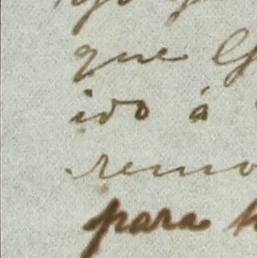 que
ido á
remo
para